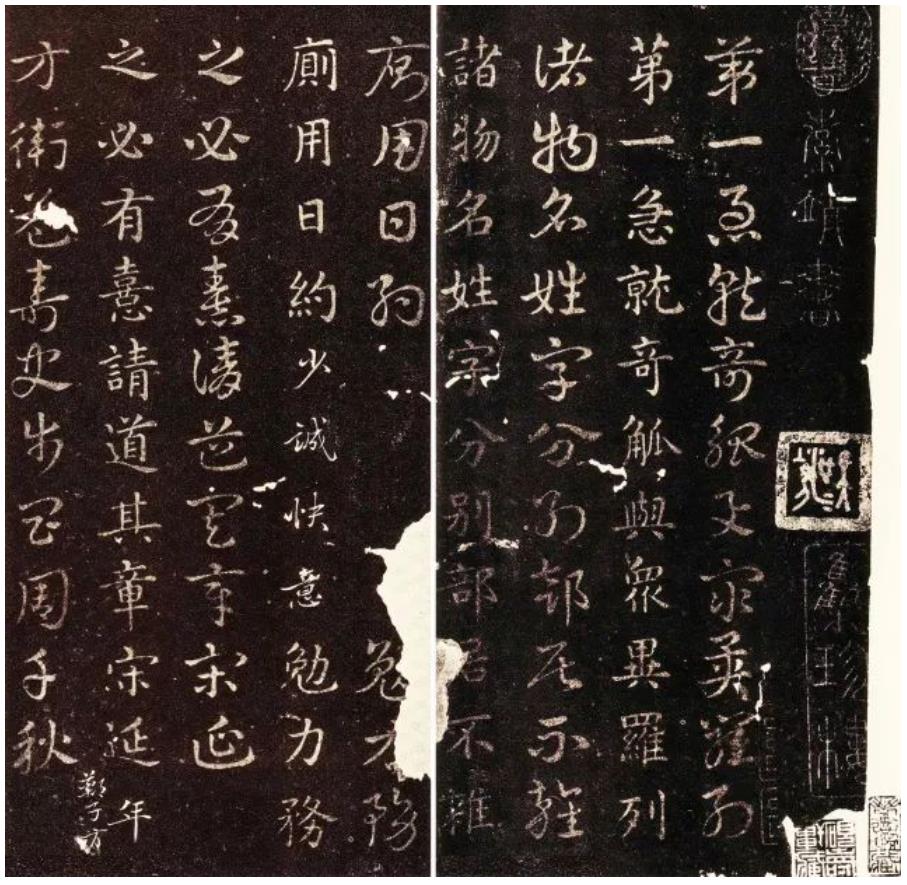 第一急就奇觚與眾異羅列
第一急就奇觚與眾異羅列
諸物名姓字分別部居不雜
諸物名姓字分別部居不雜
廁用日約 勉力務
廁用日約少誠快意勉力務
之必有憙請道其章宋延
之必有憙請道其章宋延年
鄭子方
方衛益壽史步昌周千秋